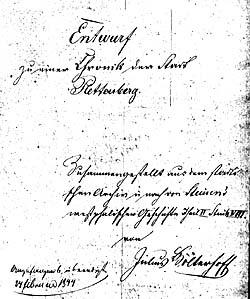 Entwurf
zu einer Chronik der Stadt
Plettenberg.
Zusammengestellt aus dem städti-
schen Archiv u. nach von Steinens
westphälischen Geschichte Theil II Stück VIII
von
Julius Bölterhoff
Angefangen u. beendigt
Februar